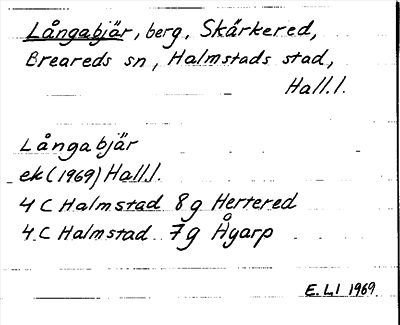 Långabjär, berg, Skårkered,
Breareds sn, Halmstads stad,
Hall.l.
Långabjär
ek (1969) Hall.l.
4 C Halmstad 8g Hertered
4 C Halmstad 7g Ågarp
E. L-l 1969